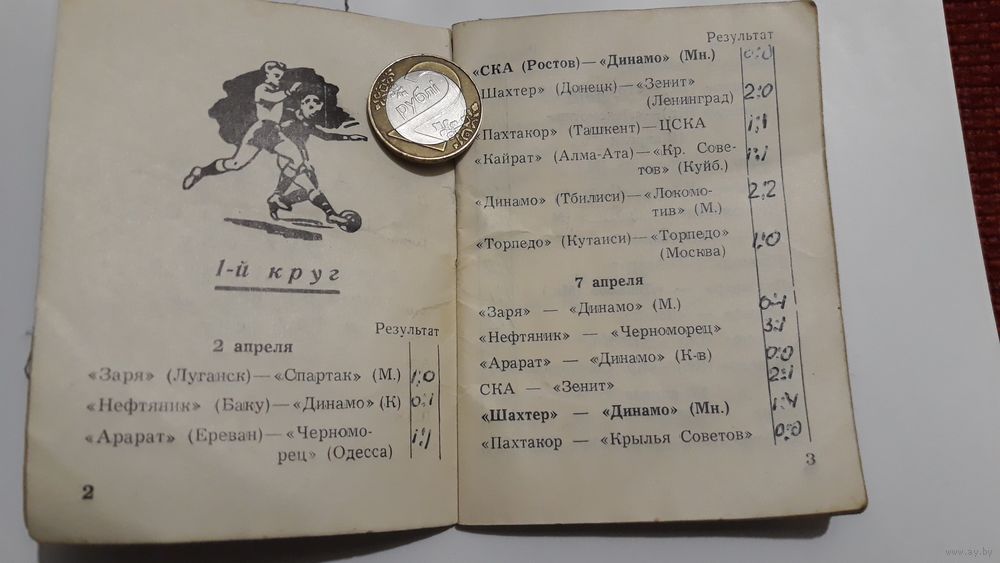 1-й круг
Результат
2 апреля
«Заря» (Луганск)—«Спартак» (М.) 1:0
«Нефтяник» (Баку)—«Динамо» (К) 0:1
«Арарат» (Ереван)—«Черномо- 1:1
рец» (Одесса)
2
рублі
Результат
«СКА (Ростов)—«Динамо» (Мн.) 0:0
Шахтер» (Донецк)—«Зенит» 2:0
(Ленинград)
«Пахтакор» (Ташкент)—ЦСКА 1:1
«Кайрат» (Алма-Ата)—«Кр. Сове- 1:1
тов» (Куйб.)
«Динамо» (Тбилиси)—«Локомо- 2:2
тив» (М.)
«Торпедо» (Кутаиси)—«Торпедо» 1:0
(Москва)
7 апреля
«Заря» — «Динамо» (М.)
«Нефтяник» — «Черноморец» 3:1
«Арарат» — «Динамо» (К-в) 0:0
СКА — «Зенит» 2:1
«Шахтер» — «Динамо» (Мн.) 1:4
«Пахтакор — «Крылья Советов» 0:0
3
www.ay.by